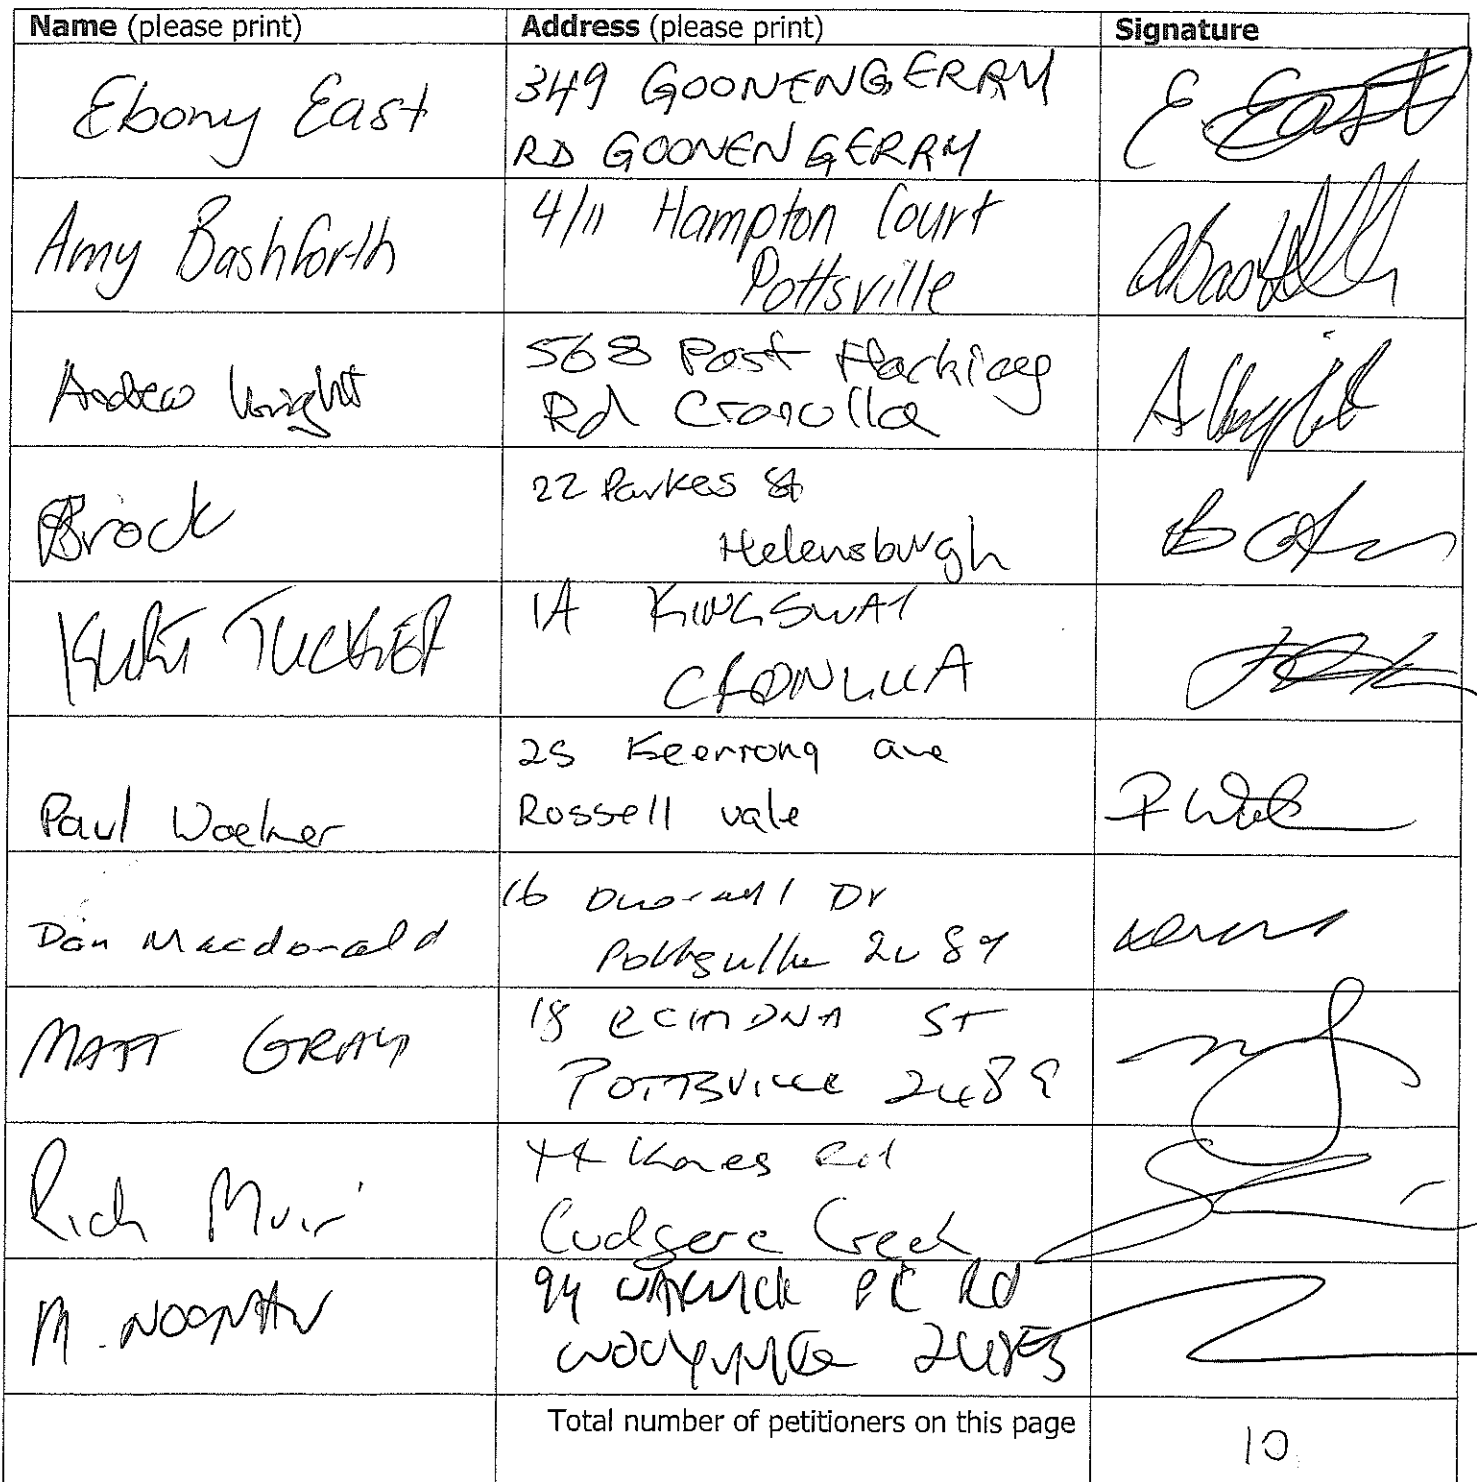 Name (please print) Address (please print) Signature
Ebony East 349 GOONENGERRY E East
RD GOONENGERRY
Amy Bashforth 4/11 Hampton Court
Pottsville
Andrew Knight 568 Port Hacking
Rd Cronulla
Brock 22 Parkes St
Helensburgh
KURT TUCKER 1A KINGSWAY
CRONULLA
25 Keerrong ave
Paul Rossell vale
Dan Macdonald 16 Dr
Pottsville 2489
MATT GRAY 18 ECHIDNA ST
POTTSVILLE 2489
Rich Muir 44 Rd
Cudgera Creek
M. NOONAN 94 Rd
Total number of petitioners on this page 10